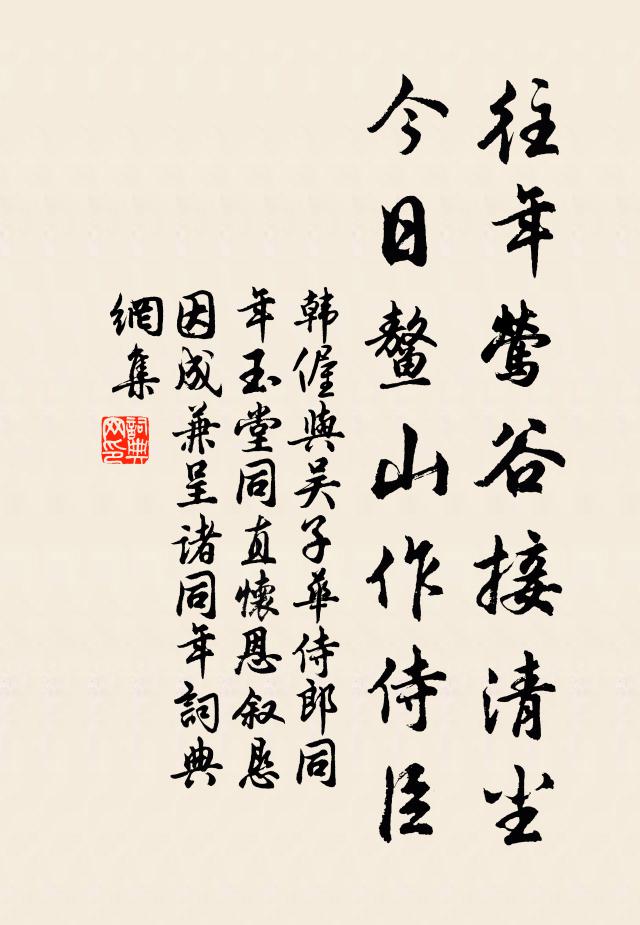 往年鶯谷接清尘
今日鰲山作侍臣
韩偓與吴子華侍郎同
年玉堂同直懷恩叙恳
因成兼呈诸同年詞典
網集
詞典
网印